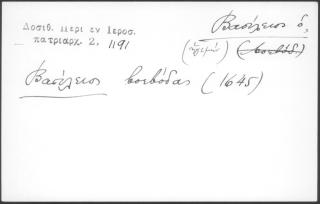 Δοσιθ. Περι εν Ιεροσ.
πατριαρχ. 2. 1191
Βασίλειος ὁ,
(ἡγεμὼν) (βοεβόδ.)
Βασίλειος βοεβόδας (1645)